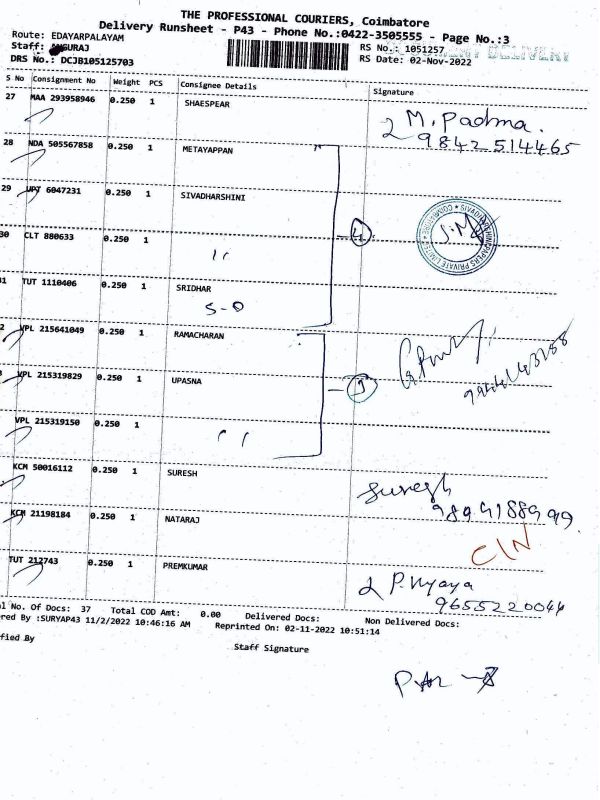 THE PROFESSIONAL COURIERS, Coimbatore
Delivery Runsheet - P43 - Phone No.:0422-3505555 - Page No.:3
Route: EDAYARPALAYAM
Staff:
RS No.: 1051257
DOCUMENT DELIVERY
DRS No.: DCJB105125703
RS Date: 02-Nov-2022
S No Consignment No Weight PCS Consignee Details Signature
27 MAA 293958946 0.250 1 SHAESPEAR
M. Padma.
9842514465
28 NDA 505567858 0.250 1 METAYAPPAN
29 UPT 6047231 0.250 1 SIVADHARSHINI
30 CLT 880633 0.250 1
4
COIMBATORE
S.M
31 TUT 1110406 0.250 1 SRIDHAR
S-O
2 VPL 215641049 0.250 1 RAMACHARAN
VPL 215319829 0.250 1 UPASNA
VPL 215319150 0.250 1
KCM 50016112 0.250 1 SURESH
Suresh
KCM 21198184 0.250 1 NATARAJ
C/N
TUT 212743 0.250 1 PREMKUMAR
9655220044
al No. Of Docs: 37 Total COD Amt: 0.00 Delivered Docs: Non Delivered Docs:
red By :SURYAP43 11/2/2022 10:46:16 AM Reprinted On: 02-11-2022 10:51:14
fied By
Staff Signature